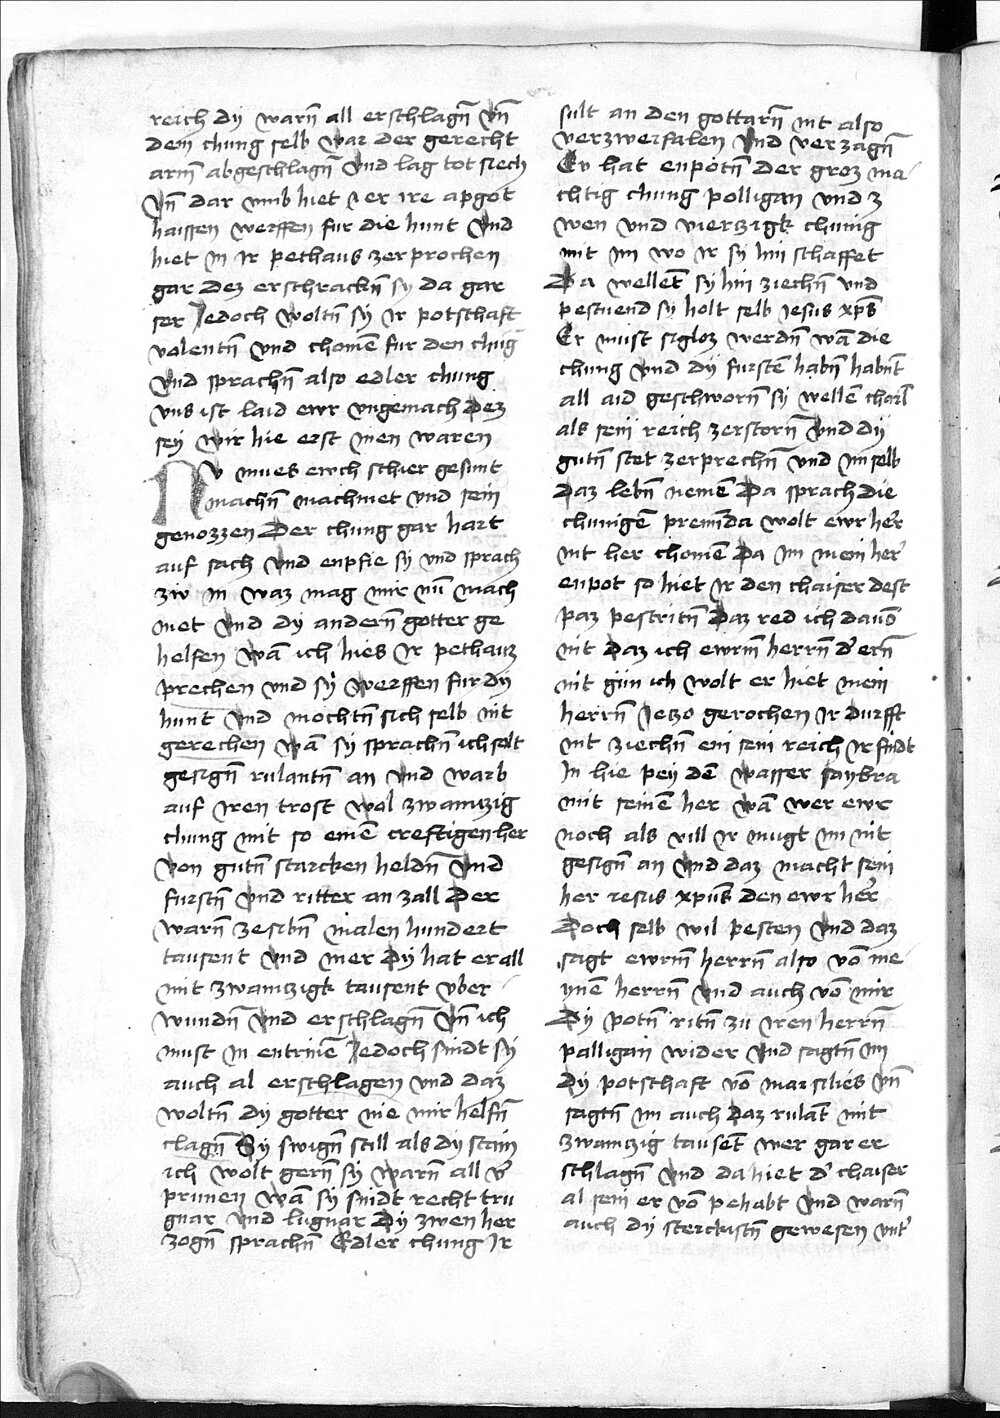 reich dy warn̄ all erschlagn̄ vn̄
dem chung selb waz der gerecht
arm̄ abgeschlagn̄ vnd lag tot siech
vn̄ dar vmb hiet er ire apgot
haissen werffen fur die hunt vnd
hiet in ir pethaus zerprochen
gar dez erschrackn̄ sy da gar
ser Jedoch woltn̄ sy ir potschaft
volentn̄ vnd chomē fur den chūg
vnd sprachn̄ also edler chung
vns ist laid ewr vngemach Dez
sey wir hie erst inen waren
Nv mues ewch schier gesunt
machn̄ machmet vnd sein
genozzen Der chung gar hart
auf sach vnd enpfie sy vnd sprach
zw in waz mag mir nu mach
met vnd dy andern̄ gotter ge
helfen wā ich hies ir pethauz
prechen vnd sy werffen fur dy
hunt vnd mochtn̄ sich selb nit
gerechen wā sy sprachn̄ ich solt
gesign̄ rulantn̄ an vnd warb
auf iren trost wol zwaintzig
chung mit so einē creftigen her
von gutn̄ starcken heldn̄ vnd
furstn̄ vnd ritter an zall Der
warn̄ zesibn̄ malen hundert
tausent vnd mer Dy hat er all
mit zwaintzigk tausent vber
wundn̄ vnd erschlagn̄ vn̄ ich
must in entrinē Jedoch sindt sy
auch al erschlagen vnd daz
woltn̄ dy gotter nie mir helfn̄
clagn̄ Sy swign̄ still als dy stain
ich wolt gern̄ sy warn̄ all v'
prunen wā sy sindt recht tru
gnar vnd lugnar Dy zwen her
zogn̄ sprachn̄ Edler chung Ir
sult an den gottarn̄ nit also
verzweifalen vnd verzagn̄
Er hat enpotn̄ der groz ma
chtig chung polligan vnd z
wen vnd vierzigk chunig
mit im wo ir sy hin schaffet
Da wellēt sy hin ziechn̄ vnd
pestuend sy holt selb iesus xp̄s
Er must sigloz werdn̄ wā die
chung vnd dy furstē habn̄ habnt
all aid geschworn̄ sy wellē charl
als sein reich zerstorn̄ vnd dy
gutn̄ stet zerprechn̄ vnd im selb
Daz lebn̄ nemē Da sprach die
chunigē premūda wolt ewr her'
nit her chomē Da im mein her'
enpot so hiet ir den chaiser dest
paz pestritn̄ Daz red ich davō
nit Daz ich ewrm̄ herrn̄ d' ern̄
nit gun ich wolt er hiet mein
herrn̄ Jetzo gerochen ir durfft
nit ziechn̄ ein sein reich ir findt
In hie pey dē wasser saybra
mit seinē her wā wer ewr
noch als vill ir mugt im nit
gesign̄ an vnd daz macht sein
her iesus xp̄us den ewr her'
Doch selb wil pesten vnd daz
sagt ewrm̄ herrn̄ also vō me
ynē herrn̄ vnd auch vō mir
Dy potn̄ ritn̄ zu iren herrn̄
palligan wider vnd sagtn̄ im
dy potschaft vō marsilies vn̄
sagtn̄ im auch Daz rulāt mit
zwaintzig tausēt wer gar er
schlagn̄ vnd da hiet d' chaiser
al sein er vō pehabt vnd warn̄
auch dy sterckistn̄ gewesen vnt'